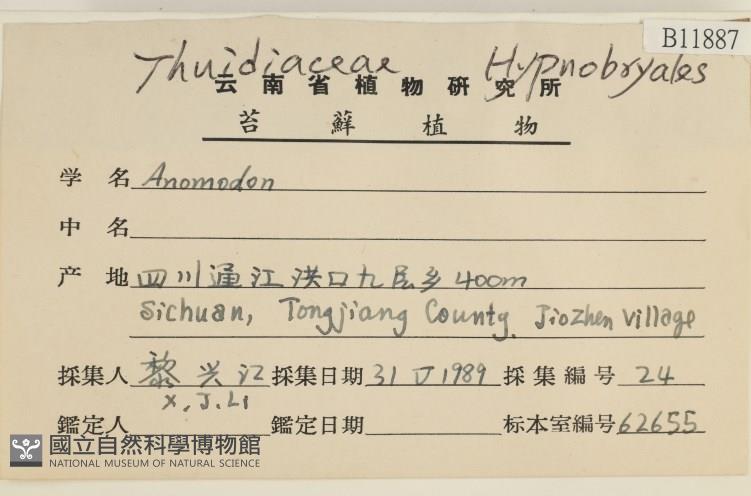 B11887
Thuidiaceae Hypnobryales
云南省植物研究所
苔蘚植物
学名 Anomodon
中名
产地 四川通江洪口九层乡 400m
Sichuan, Tongjiang County, Jiozhen village
採集人 黎兴江 採集日期 31 V 1989 採集編号 24
X.J.Li
鑑定人 鑑定日期 标本室編号 62655
國立自然科學博物館
NATIONAL MUSEUM OF NATURAL SCIENCE